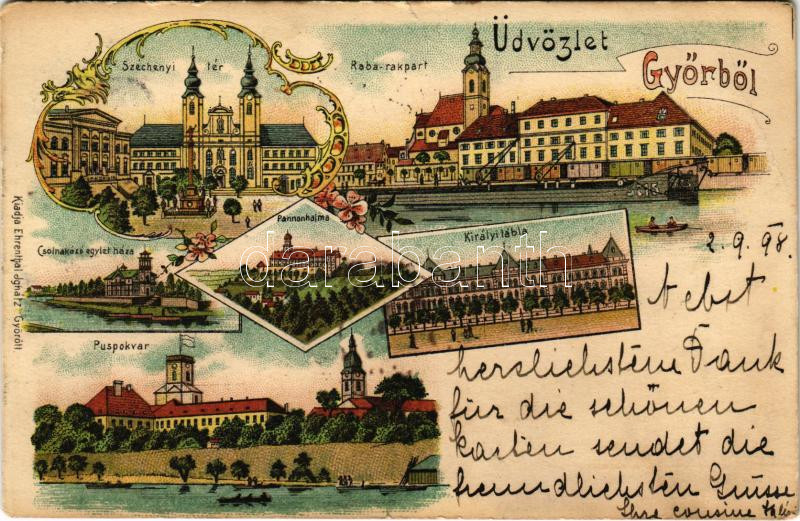 Üdvözlet
Győrből
Szechenyi tér
Raba-rakpart
Pannonhalma
Csolnakázó egylet háza
Királyi tábla
Puspokvar
Kiadja Ehrenthal Ignátz Győrött
darabanth
2.9.98.
Nebst
herzlichstene Dank
für die schönen
karten sendet die
freundlichsten Grüsse
Ihre cousine